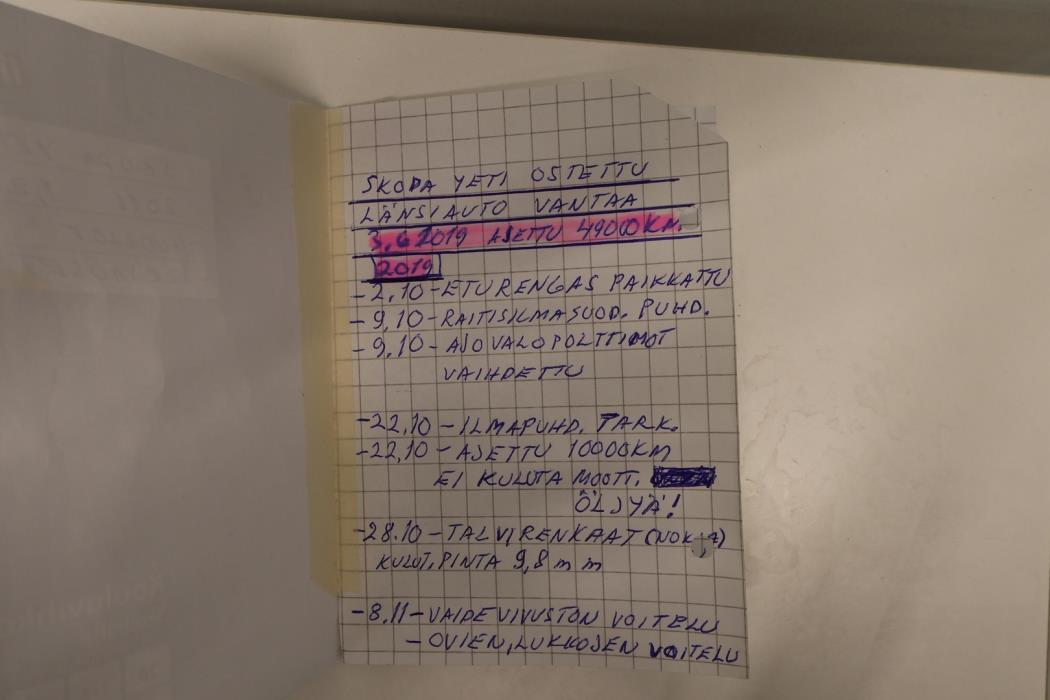 SKODA YETI OSTETTU
LÄNSIAUTO VANTAA
3.6 2019 AJETTU 49000 KM.
2019
-2.10-ETURENGAS PAIKKATTU
-9.10-RAITISILMASUOD. PUHD.
-9.10-AJOVALOPOLTTIMOT
VAIHDETTU
-22.10-ILMAPUHD. TARK.
-22.10-AJETTU 10000KM
EI KULUTA MOOTT.
ÖLJYÄ!
-28.10-TALVIRENKAAT
KULUT.PINTA 9,8 mm
-8.11-VAIDEVIVUSTON VOITELU
-OVIEN,LUKKOJEN VOITELU